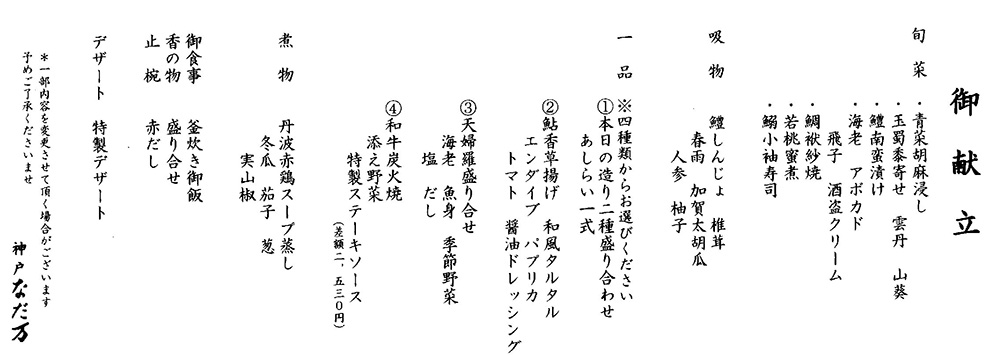 御献立
旬菜
・青菜胡麻浸し
・玉蜀黍寄せ 雲丹 山葵
・鱧南蛮漬け
・海老 アボカド
飛子 酒盗クリーム
・鯛袱紗焼
・若桃蜜煮
・鰯小袖寿司
吸物
鱧しんじょ 椎茸
春雨 加賀太胡瓜
人参 柚子
一品
※四種類からお選びください
①本日の造り二種盛り合わせ
あしらい一式
②鮎香草揚げ 和風タルタル
エンダイブ パプリカ
トマト 醤油ドレッシング
③天婦羅盛り合せ
海老 魚身 季節野菜
塩 だし
④和牛炭火焼
添え野菜
特製ステーキソース
(差額二、五三〇円)
煮物
丹波赤鶏スープ蒸し
冬瓜 茄子 葱
実山椒
御食事 釜炊き御飯
香の物 盛り合せ
止椀 赤だし
デザート 特製デザート
*一部内容を変更させて頂く場合がございます
予めご了承くださいませ
神戸なだ万